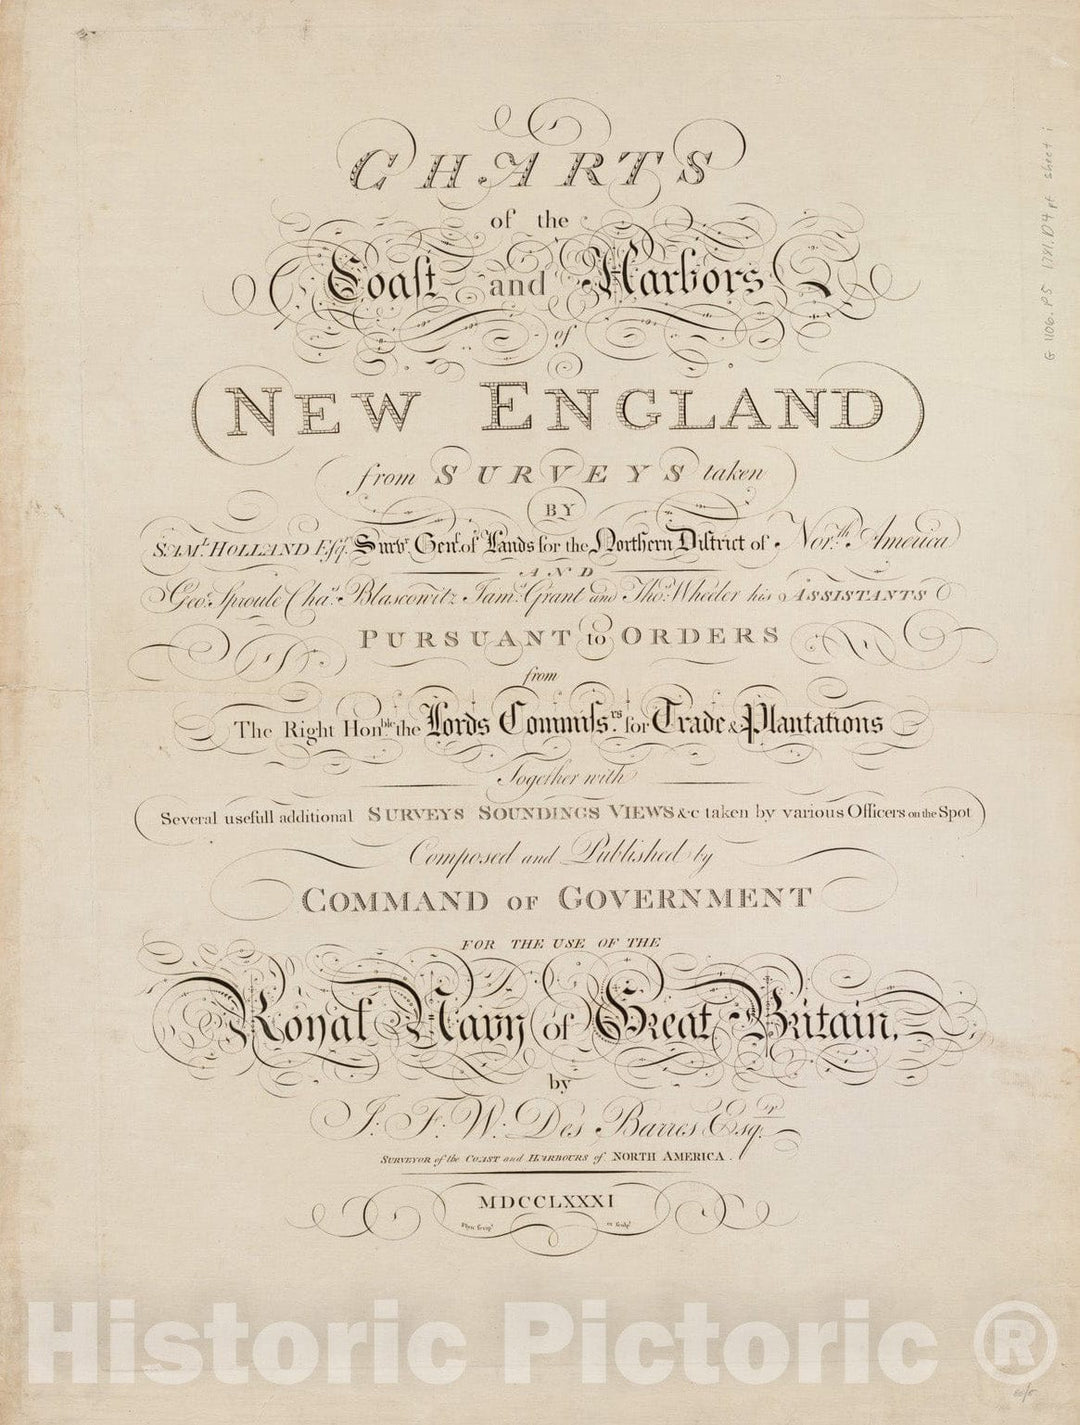 CHARTS
of the
Coast and Harbors
of
NEW ENGLAND
from SURVEYS taken
BY
SAMl. HOLLAND Esqr. Survr. Genl. of Lands for the Northern District of North. America
AND
Geo. Sproule Chas. Blascowitz Jams. Grant and Thos. Wheeler his ASSISTANTS
PURSUANT to ORDERS
from
The Right Honble the Lords Commissrs. for Trade & Plantations
Together with
Several usefull additional SURVEYS SOUNDINGS VIEWS &c taken by various Officers on the Spot
Composed and Published by
COMMAND OF GOVERNMENT
FOR THE USE OF THE
Royal Navy of Great Britain,
by
J. F. W. Des Barres Esqr.
SURVEYOR of the COAST and HARBOURS of NORTH AMERICA.
MDCCLXXXI
G 1106.P5 1781.D4 pt sheet 1
Historic Pictoric ®